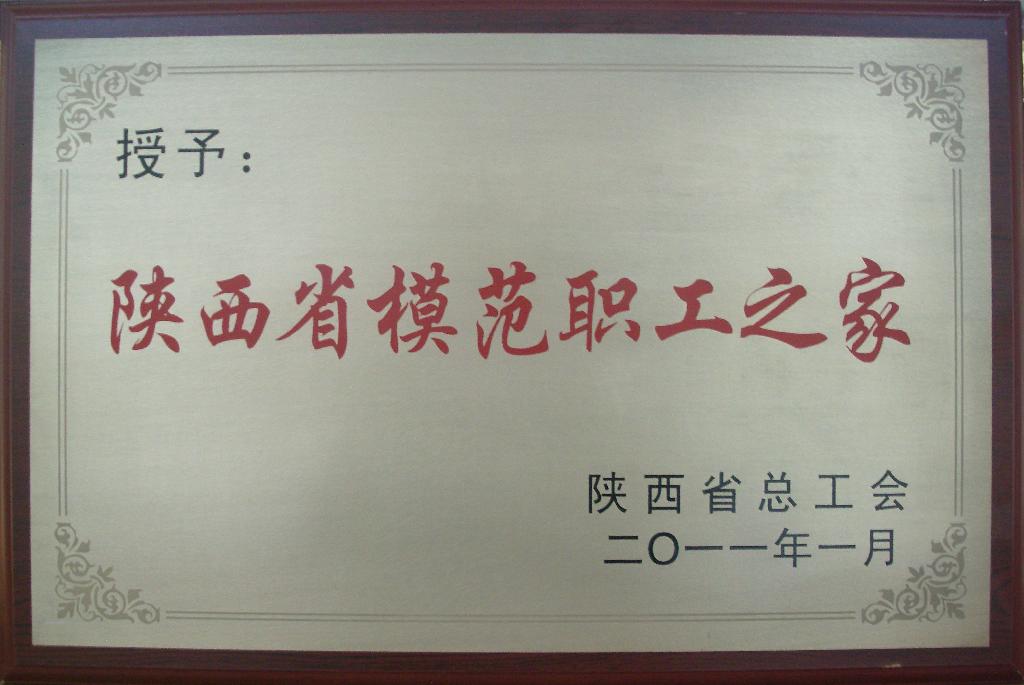 授予：
陕西省模范职工之家
陕西省总工会
二〇一一年一月